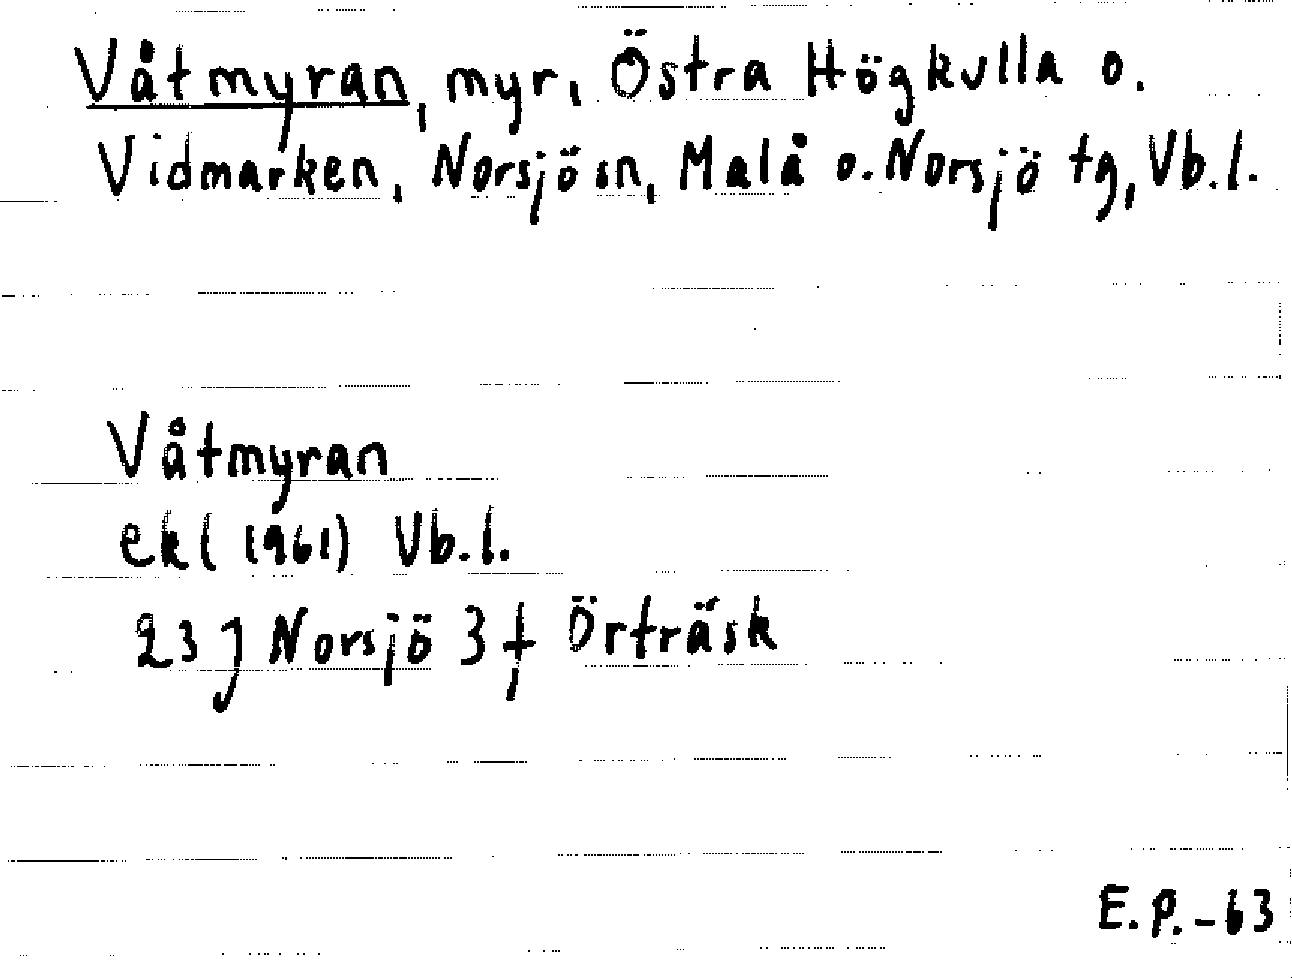 Våtmyran, myr, Östra Högkulla o.
Vidmarken, Norsjö sn, Malå o. Norsjö tg, Vb.l.
Våtmyran
ekl (1961) Vb.l.
23 J Norsjö 3 f Örträsk
E.P.-63